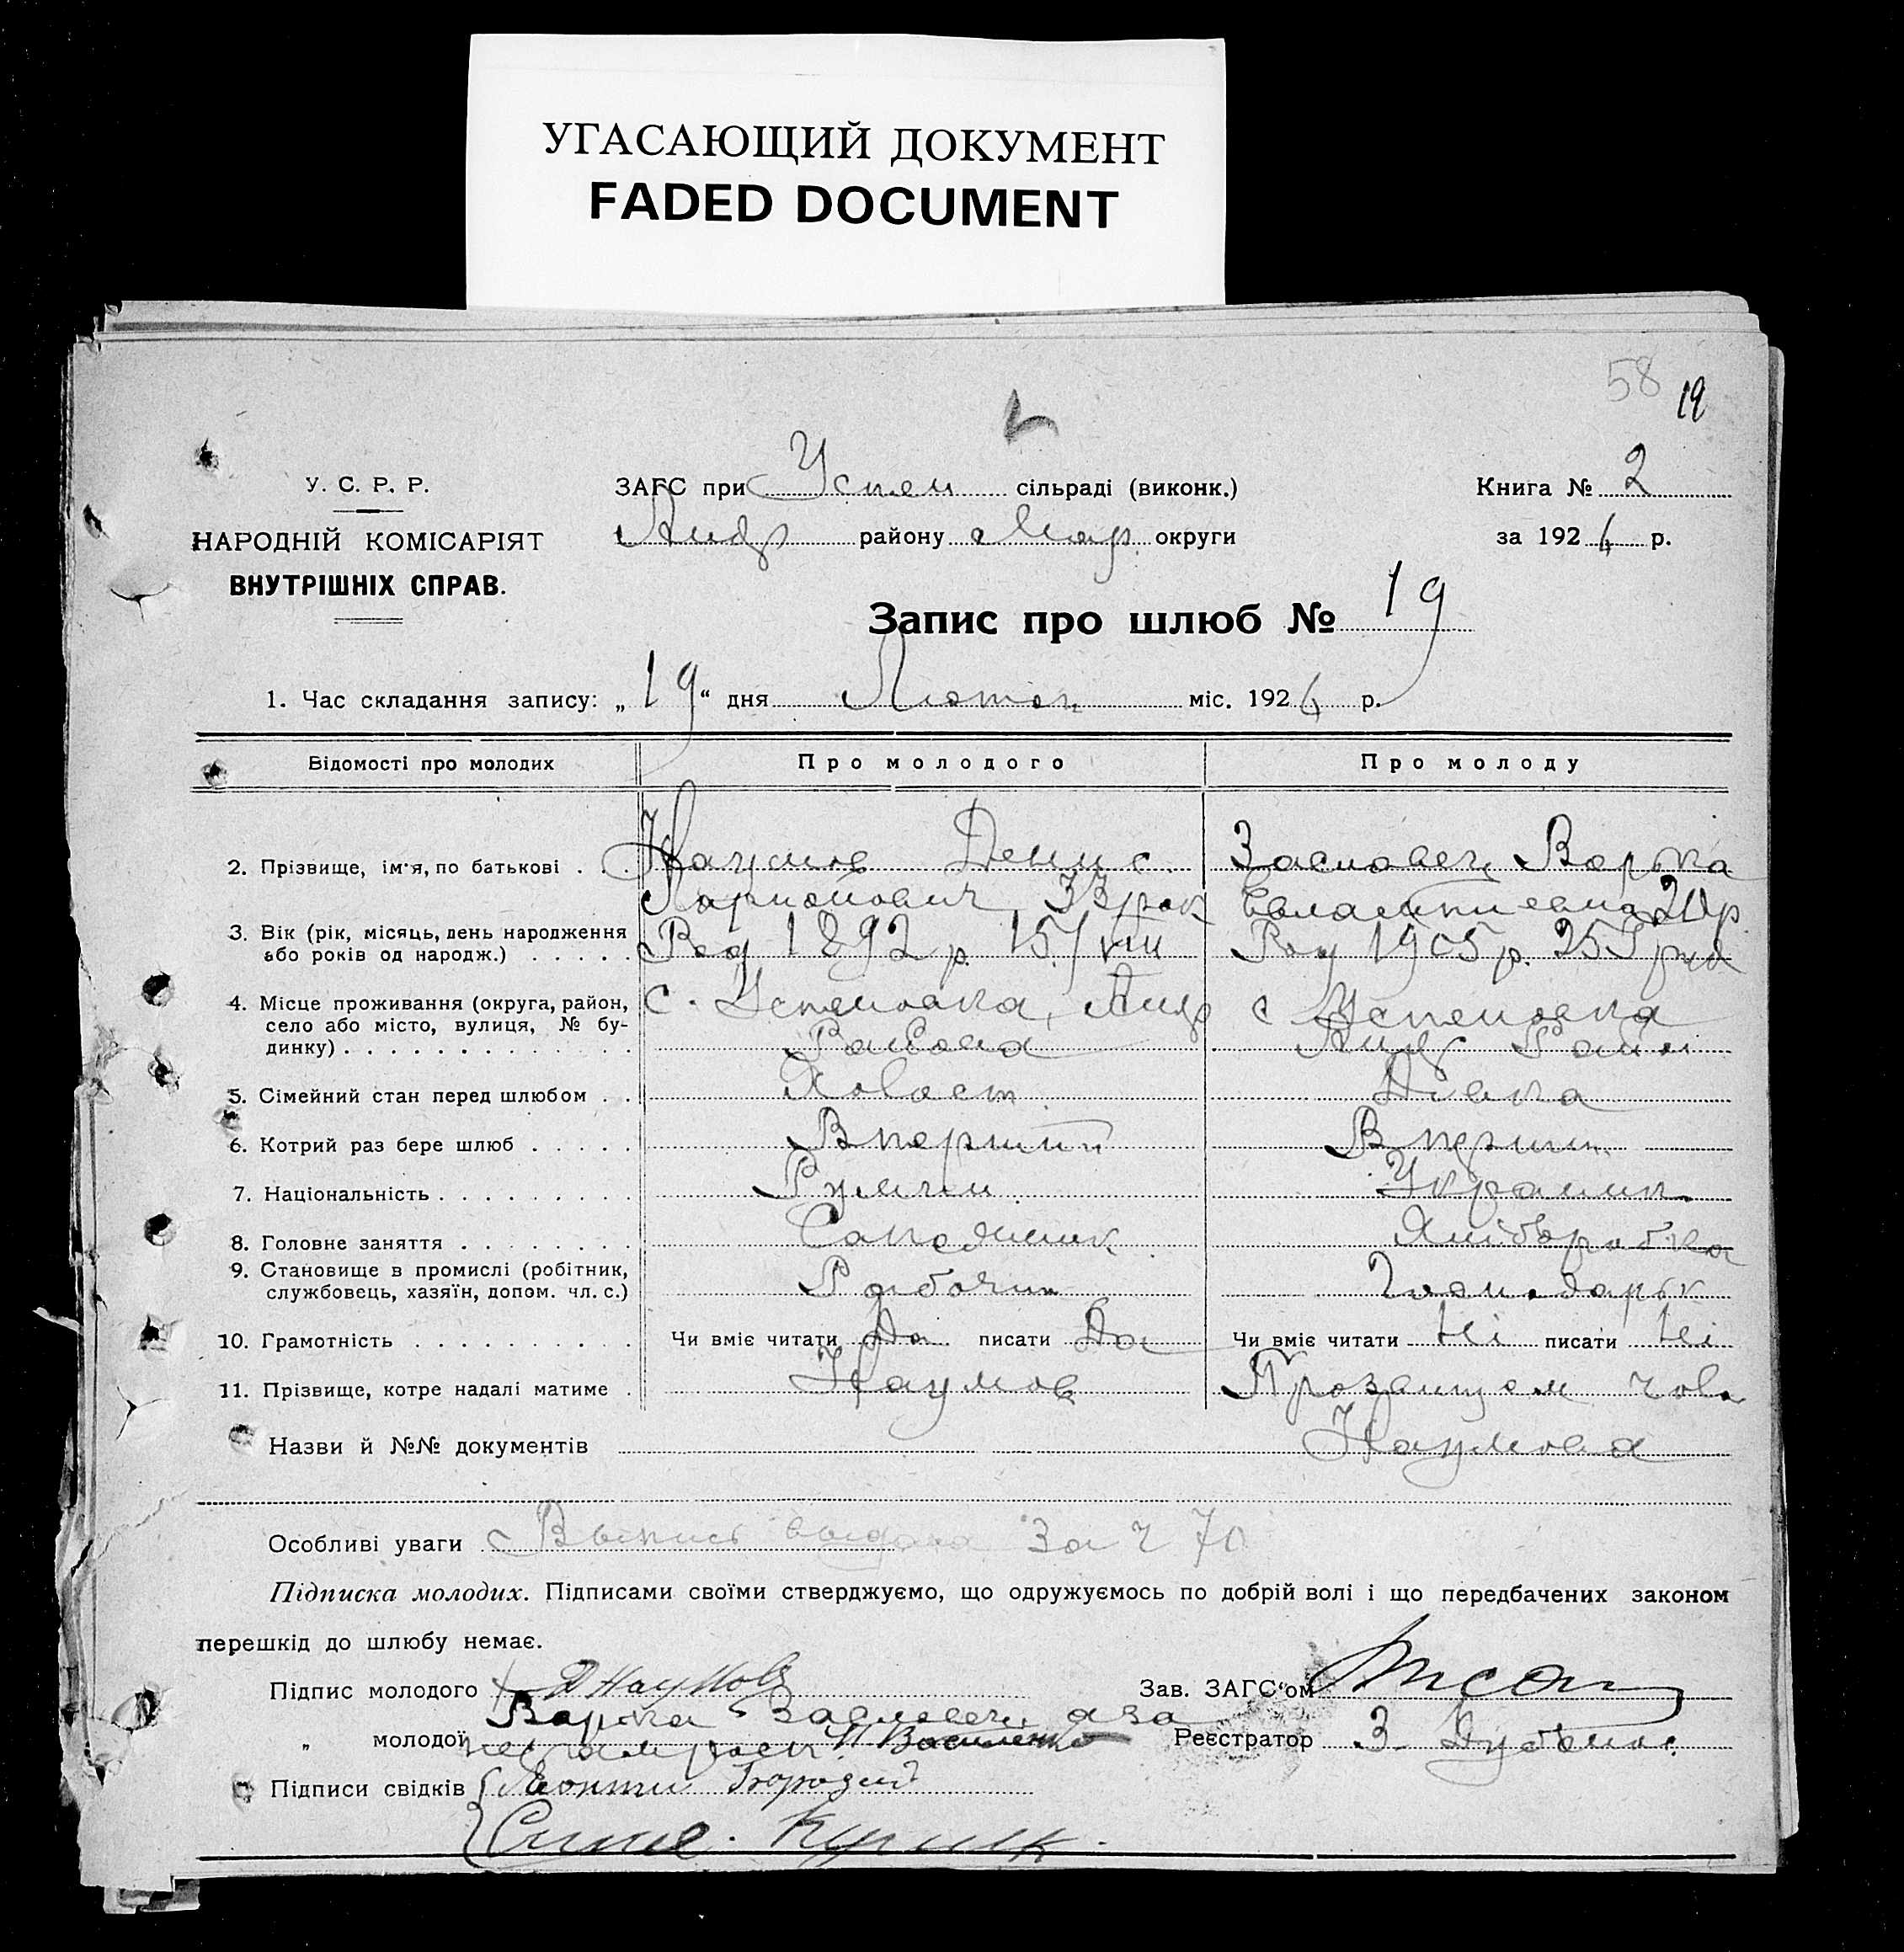 УГАСАЮЩИЙ ДОКУМЕНТ
FADED DOCUMENT
58 19
У. С. Р. Р.
НАРОДНІЙ КОМІСАРІЯТ
ВНУТРІШНІХ СПРАВ.
ЗАГС при Успен сільраді (виконк.)
Андр району Мар. округи
Книга № 2
за 1926 р.
Запис про шлюб № 19
1. Час складання запису: „19“ дня Лютого міс. 1926 р.
Відомості про молодих Про молодого Про молоду
2. Прізвище, ім'я, по батькові . . . Наумов Денис Варька
Ларионович 33 рок 20 р
3. Вік (рік, місяць, день народження
або років од народж.) . . . . . Род 1892 р. 15/VIII Род 1905 р.
4. Місце проживання (округа, район,
село або місто, вулиця, № бу-
динку) . . . . . . . . . . . . . с. Успеновка, Андр с Успеновка
Района Андр Район
5. Сімейний стан перед шлюбом . . Холост Дівка
6. Котрий раз бере шлюб . . . . . Вперший Вперши
7. Національність . . . . . . . . . Украинк.
8. Головне заняття . . . . . . . . Сапожник Хліборобка
9. Становище в промислі (робітник,
службовець, хазяїн, допом. чл. с.) Рабочий
10. Грамотність . . . . . . . . . . Чи вміє читати Да писати Да Чи вміє читати Ні писати Ні
11. Прізвище, котре надалі матиме . Наумов чов.
Назви й №№ документів Наумова
Особливі уваги Выпись выдана за ч 70
Підписка молодих. Підписами своїми стверджуємо, що одружуємось по добрій волі і що передбачених законом
перешкід до шлюбу немає.
Підпис молодого Д Наумов Зав. ЗАГС'ом
Варка за
„ молодої неграмотн. И. Василенко Реєстратор З.
Підписи свідків